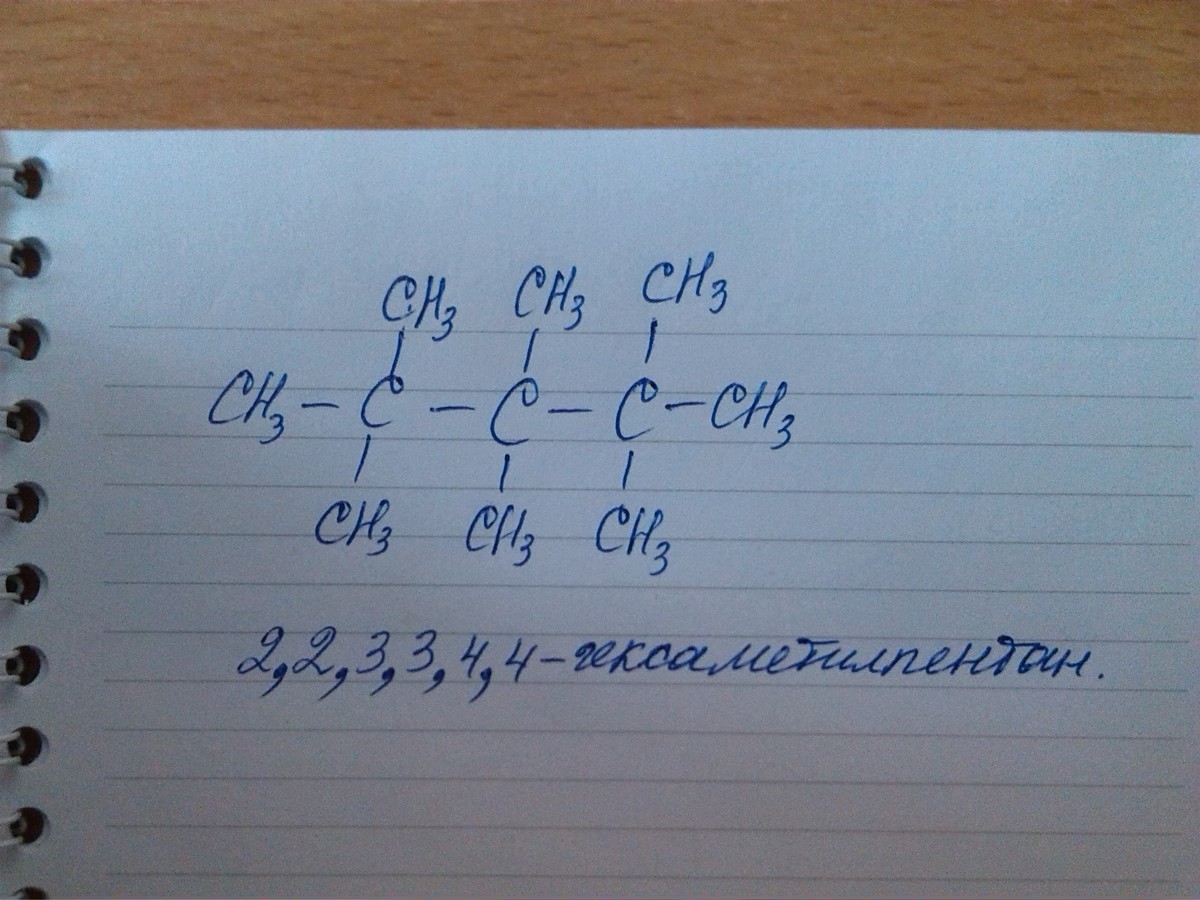 CH3 CH3 CH3
CH3 – C – C – C – CH3
CH3 CH3 CH3
2,2,3,3,4,4–гексаметилпентан.